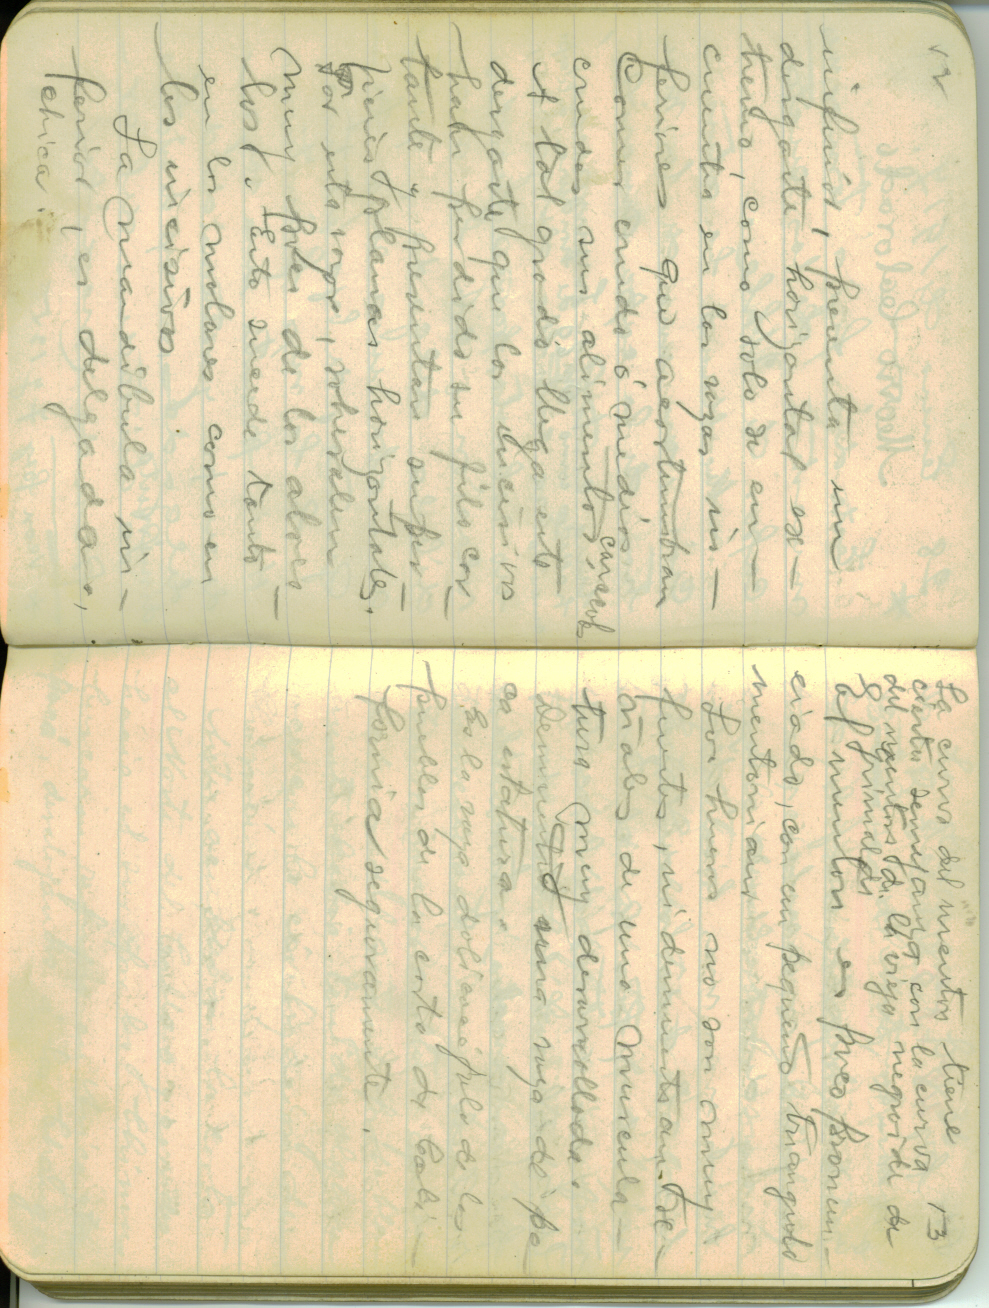 12
inferior, presenta un
desgaste horizontal ex-
tremo, como solo se en-
cuentra en las razas in-
feriores que acostumbran
comer crudo ó medios
crudos sus alimentos,
A tal grado llega este
desgaste que los incisivos
han perdido su filo cor-
tante y presentan super-
ficies planas horizontales.
Por esta razon, sobresalen
muy poco de los alveo-
los. Esto sucede tanto
en los molares como en
los incisivos
La mandibula in-
ferior, es delgada,
chica.
13
La curva del menton tiene
cierta semejanza con la curva
del menton de la vieja negroide de
Grimaldi
El menton es poco pronun-
ciado, con un pequeño triangulo
mentoniano
Los huesos no son muy
fuertes, ni demuestran se-
ñales de una muscula-
tura muy desarrollada
Demuestra una raza de po
ca estatura.
Es la raza dolicocéfala de los
pueblos de la costa de Cali-
fornia seguramente.